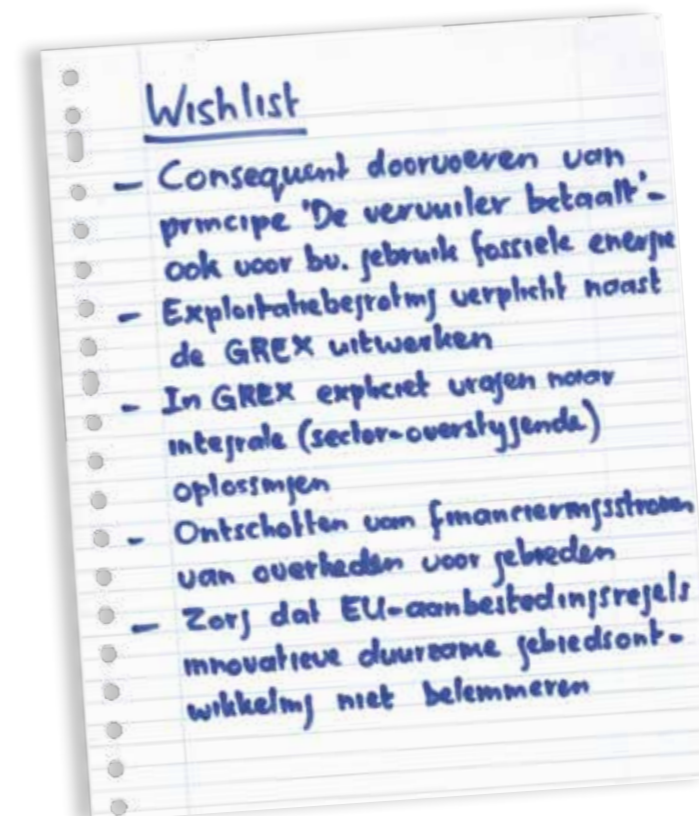 Wishlist
- Consequent doorvoeren van
principe 'De vervuiler betaalt'-
ook voor bv. gebruik fossiele energie
- Exploitatiebegroting verplicht naast
de GREX uitwerken
- In GREX expliciet vragen naar
integrale (sector-overstijgende)
oplossingen
- Ontschotten van financieringsstromen
van overheden voor gebieden
- Zorg dat EU-aanbestedingsregels
innovatieve duurzame gebiedsont-
wikkeling niet belemmeren